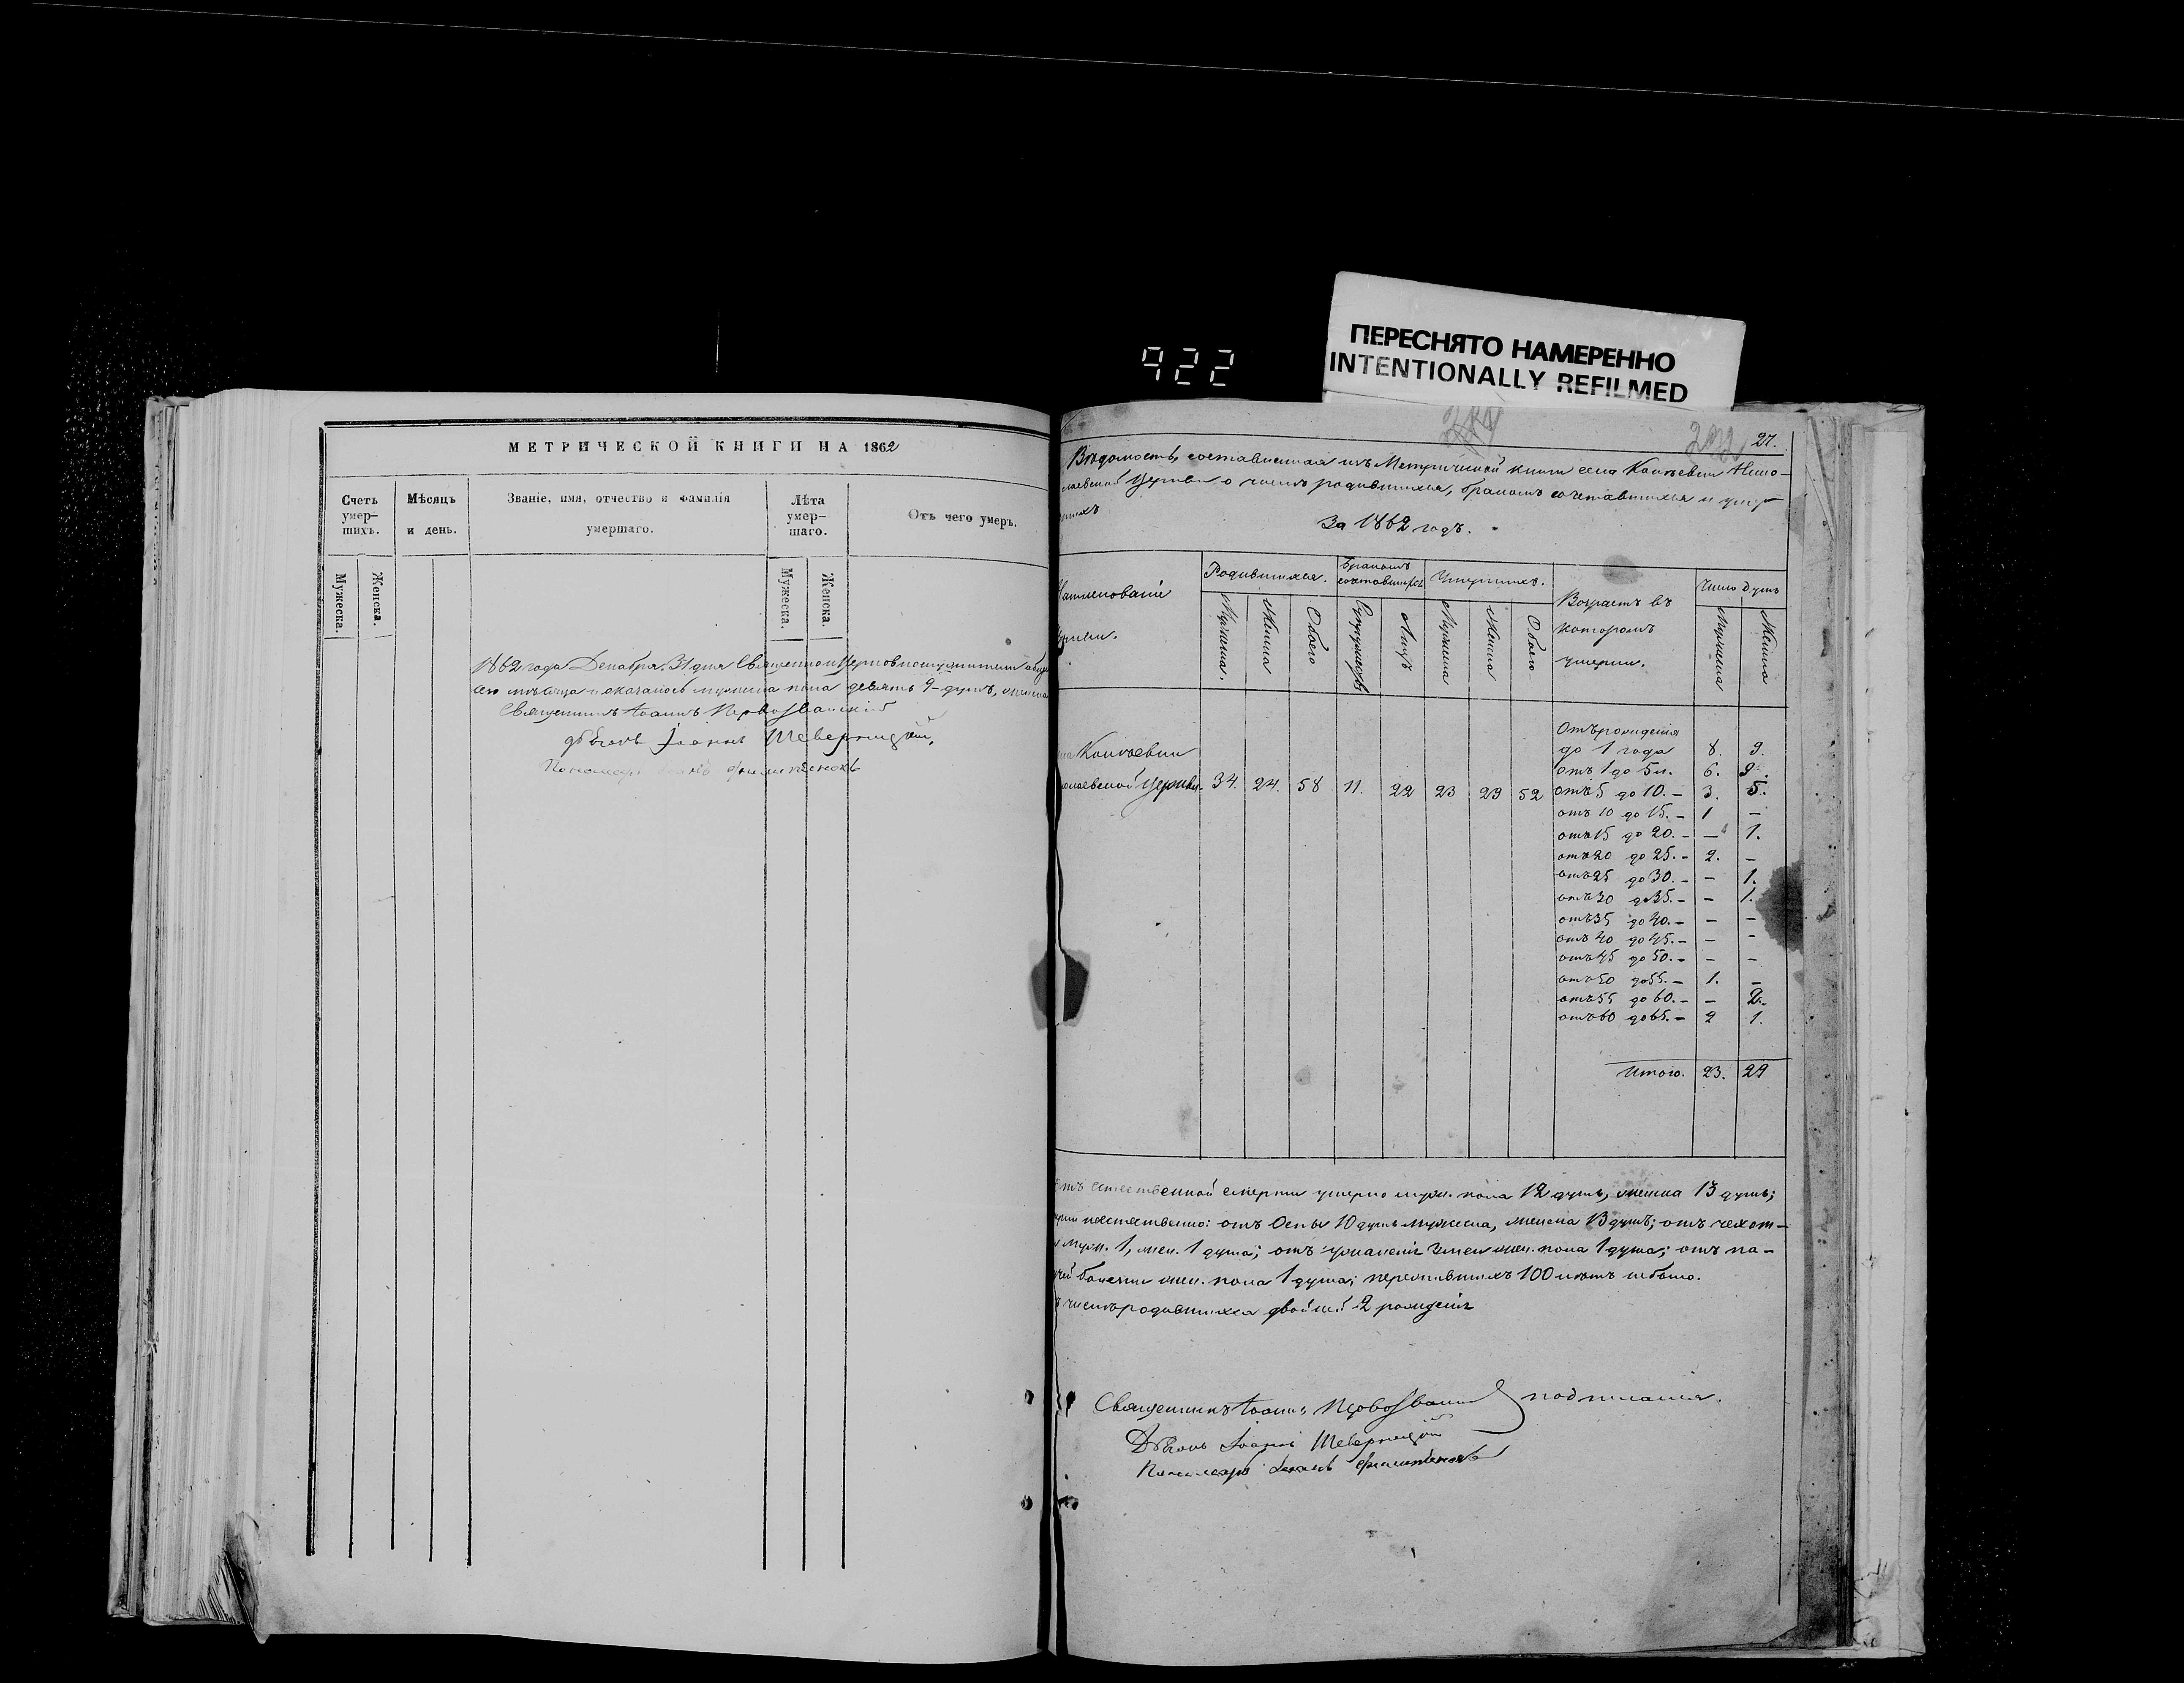 922
ПЕРЕСНЯТО НАМЕРЕННО
INTENTIONALLY REFILMED
МЕТРИЧЕСКОЙ КНИГИ НА 1862
Счетъ умер-шихъ.
Мѣсяцъ и день.
Званіе, имя, отчество и фамилія умершаго.
Лѣта умер-шаго.
Отъ чего умеръ.
Мужеска.
Женска.
Мужеска.
Женска.
1862 года Декабря 31 дня
сего мѣсяца и оказалось мужеска пола девять 9 душъ,
Священникъ Іоаннъ Первозванскій
Діаконъ Іоаннъ
Пономарь
27.
Вѣдомость, составленная изъ Метрической книги села
Церкви о числѣ родившихся, бракомъ сочетавшихся и умер-
шихъ
За 1862 годъ.
Наименованіе
Церкви.
Родившихся.
Бракомъ сочетавшихся
Умершихъ.
Возрастъ въ которомъ умерли.
Число душъ
Мужеска.
Женска
Обоего
Супружествъ
Лицъ
Мужеска
Женска
Обоего
Мужеска
Женска
Церкви. 34. 24. 58 11. 22 23 29 52
Отъ рожденія
до 1 года 8. 9.
отъ 1 до 5 л. 6. 9.
отъ 5 до 10. – 3. 5.
отъ 10 до 15. – 1 –
отъ 15 до 20. – – 1.
отъ 20 до 25. – 2. –
отъ 25 до 30. – – 1.
отъ 30 до 35. – – 1.
отъ 35 до 40. – – –
отъ 40 до 45. – – –
отъ 45 до 50. – – –
отъ 50 до 55. – 1. –
отъ 55 до 60. – – 2.
отъ 60 до 65. – 2 1.
Итого. 23. 29
отъ естественной смерти умерло муж. пола 12 душъ, женска 13 душъ;
неестественно: отъ Оспы 10 душъ мужеска, женска 13 душъ; отъ чахот-
муж. 1, жен. 1 душа; отъ жен. пола 1 душа; отъ па-
болезни жен. пола 1 душа; пережившихъ 100 лѣтъ не было.
числѣ родившихся двойней 2 рожденія
Священникъ Іоаннъ Первозванскій
Діаконъ Іоаннъ
Пономарь